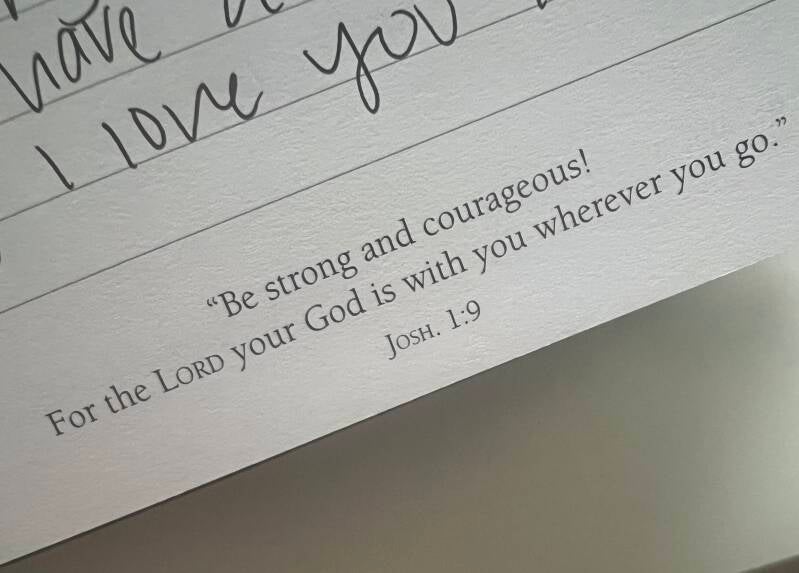 have
I love you
“Be strong and courageous!
For the LORD your God is with you wherever you go.”
JOSH. 1:9